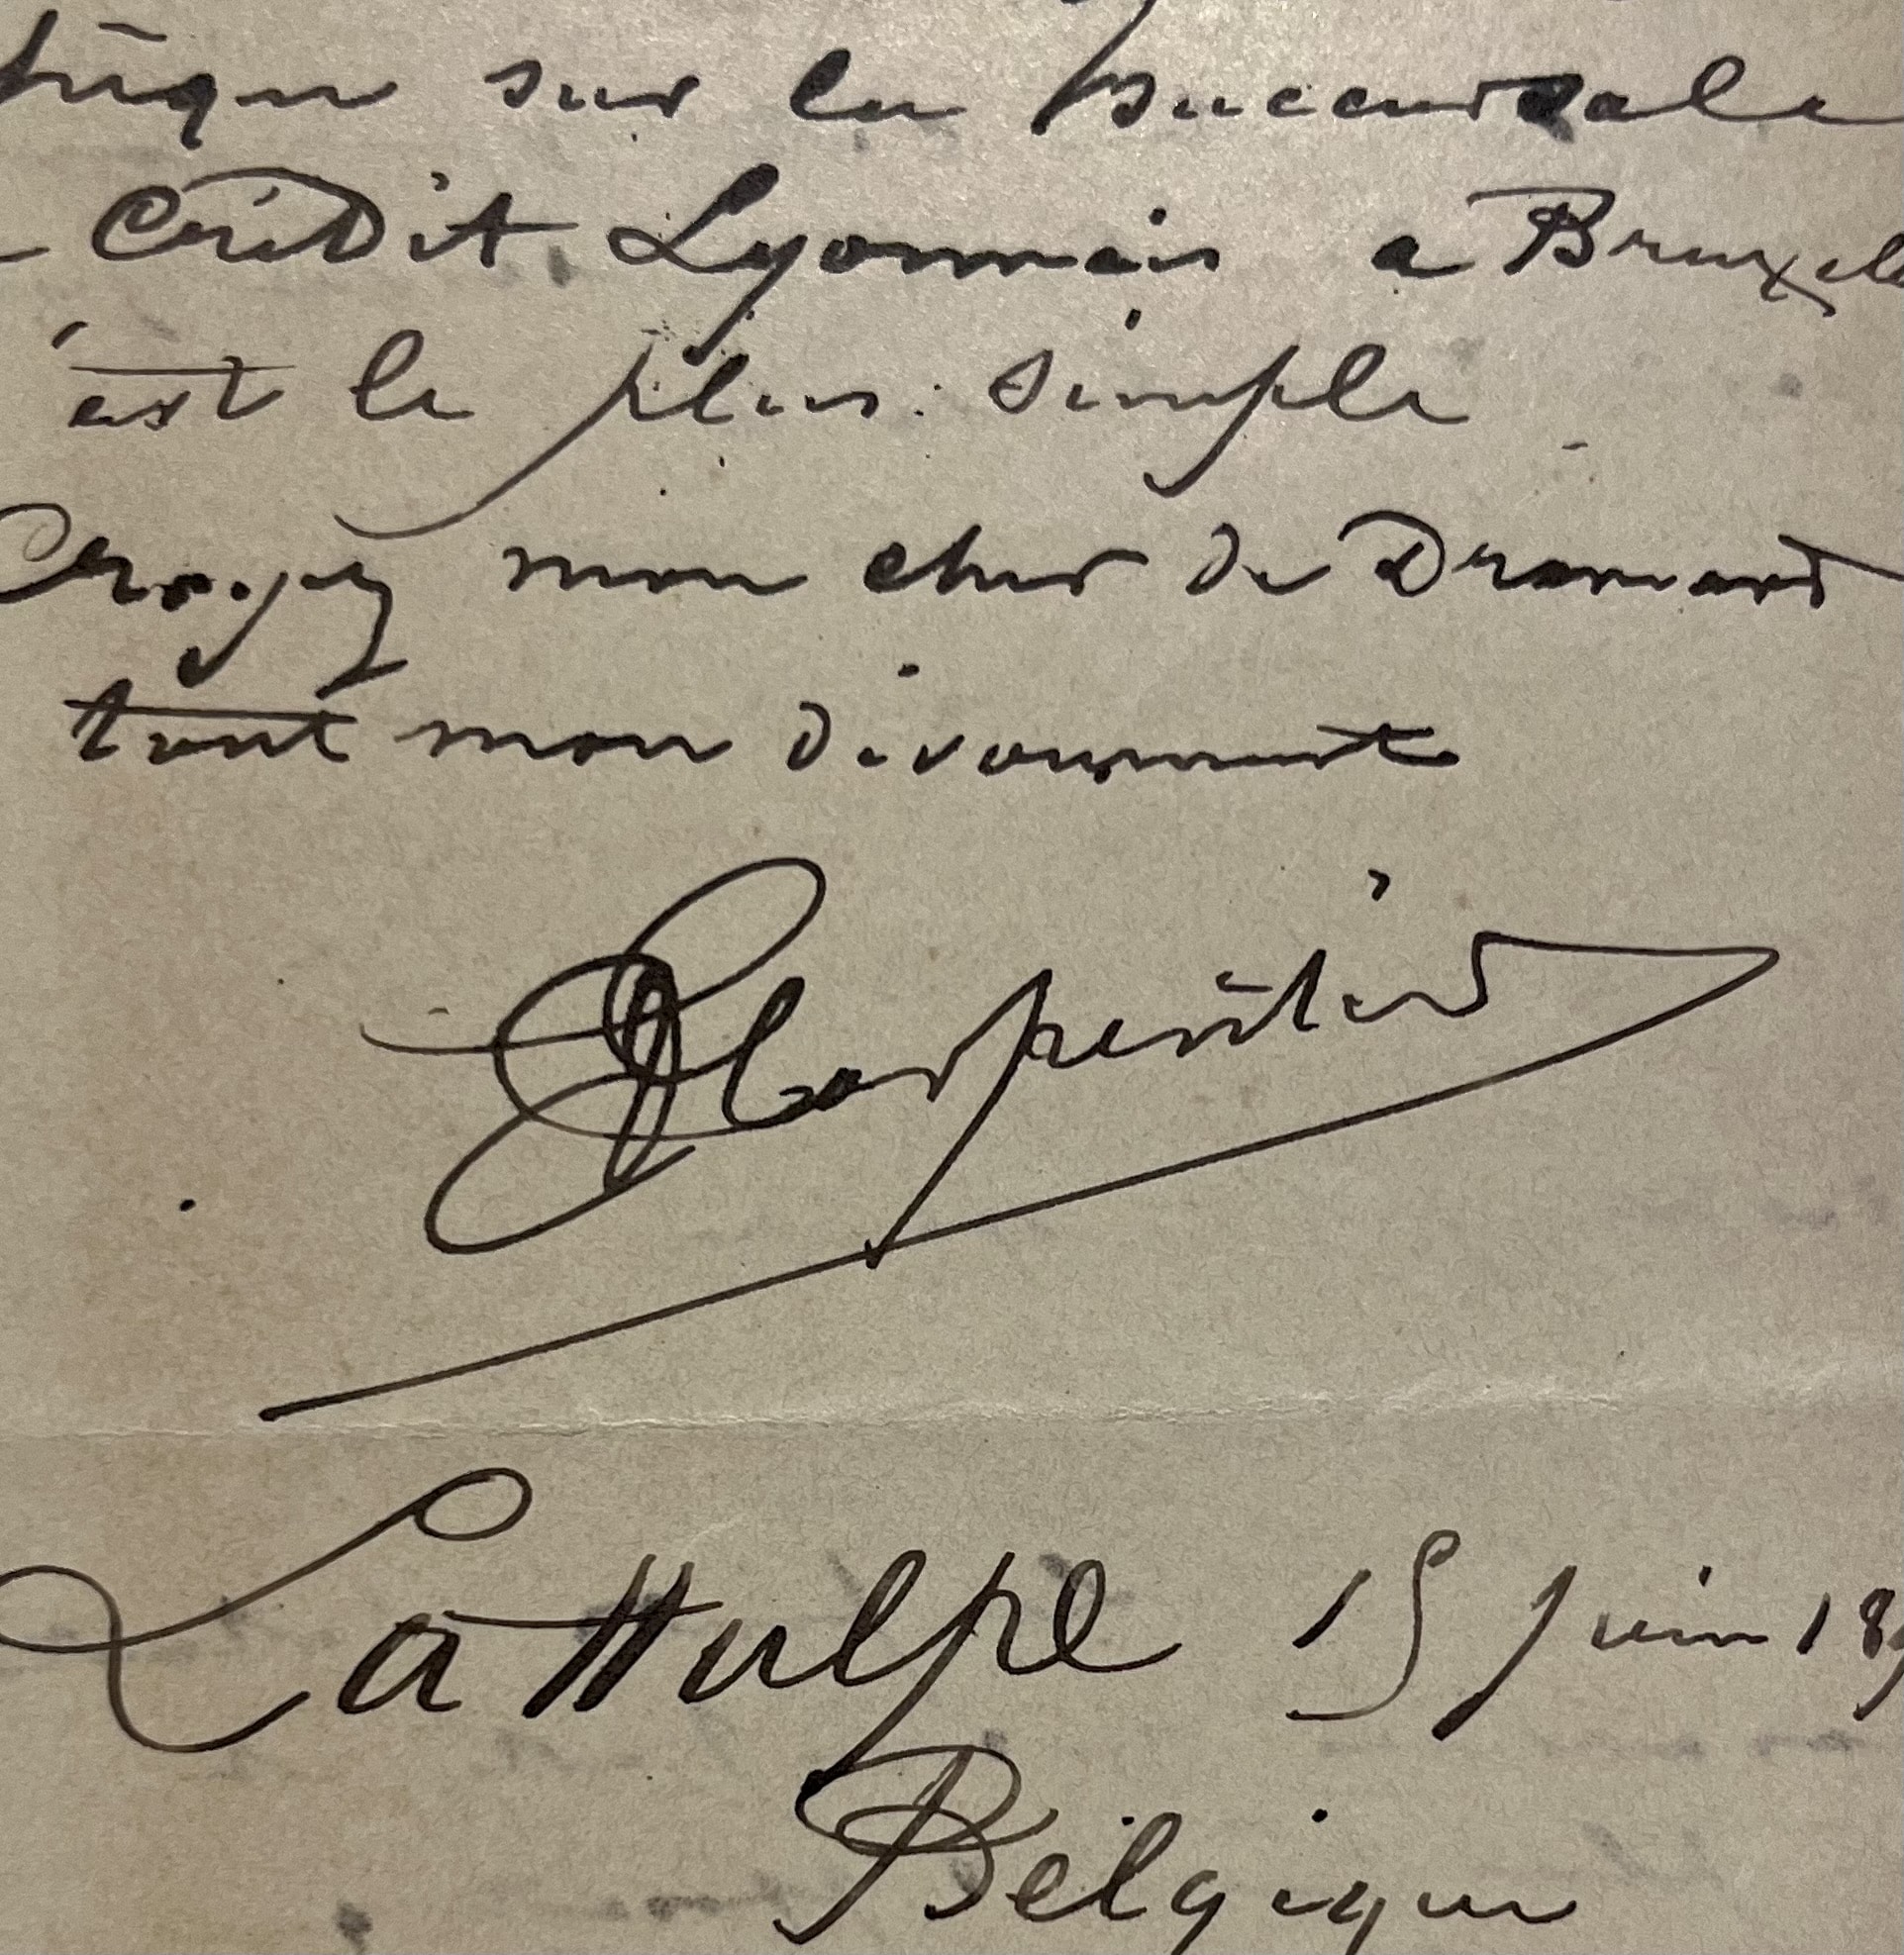 chèque sur la succursale
Crédit Lyonnais a Bruxelle
c'est le plus simple
Croyez mon cher de Dramard
tout mon dévouement
Carpentier
La Hulpe 15 Juin 18
Belgique